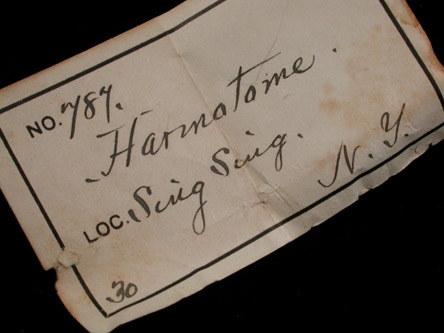 NO. 787.
Harmotome.
LOC. Sing Sing.
N.Y.
30